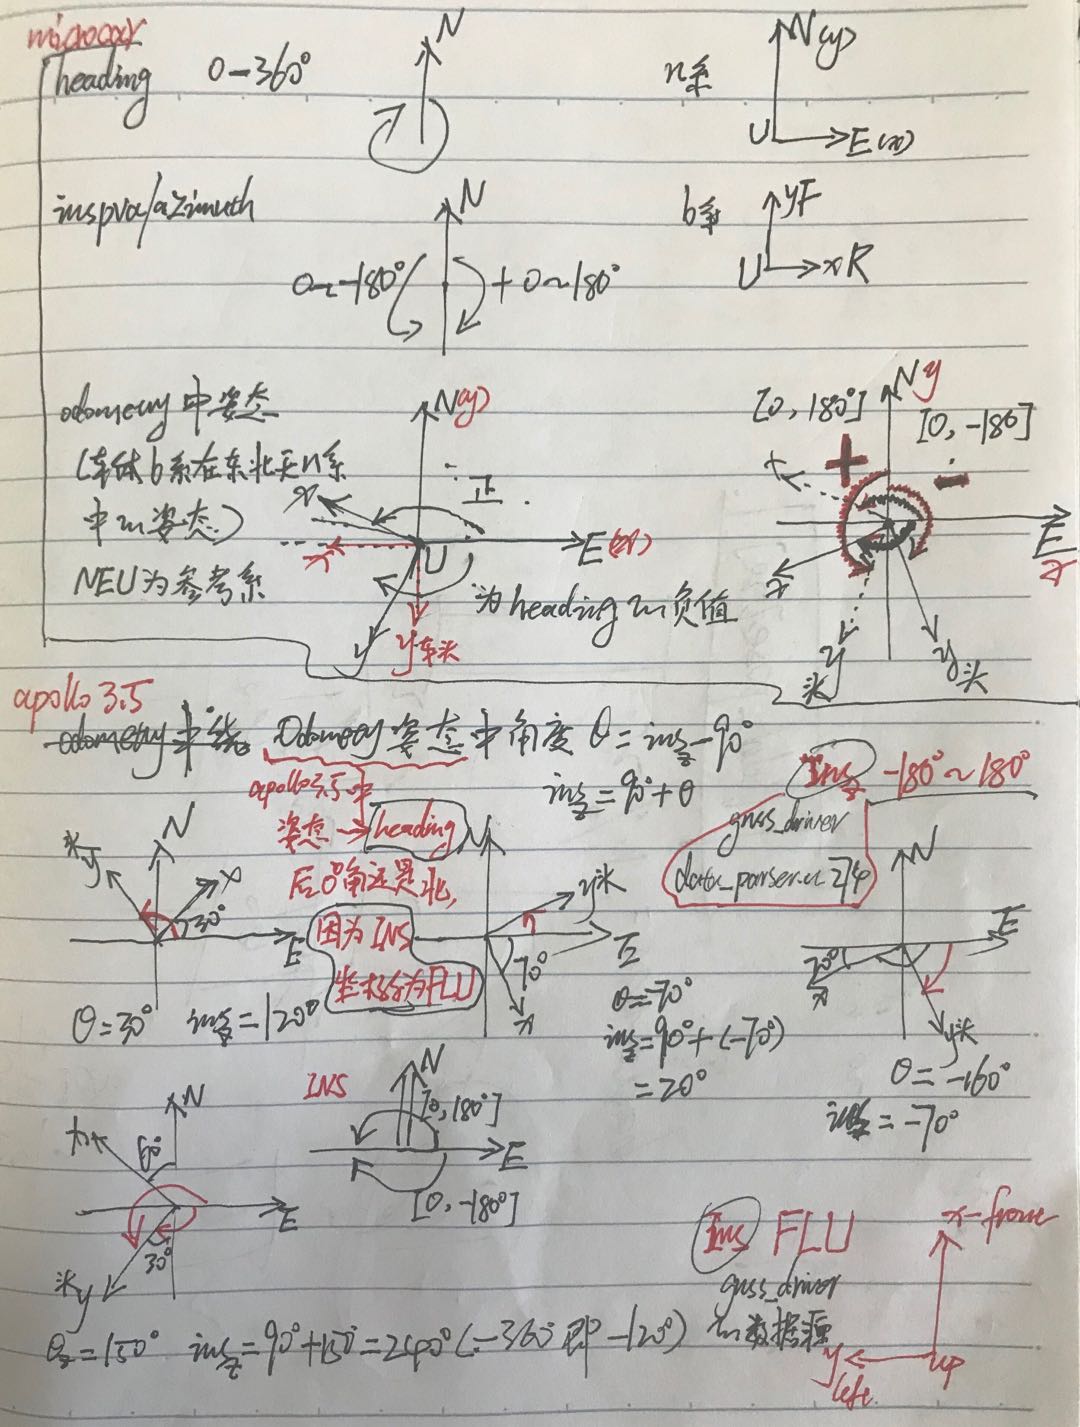 heading 0-360° N
n系 N(y) U E(x)
inspva/azimuth N
0~-180° +0~180°
b系 yF U xR
odometry中姿态
(车体b系在东北天n系
中的姿态)
NEU为参考系
N(y) 正 x x U E
y y车头
为heading的负值
[0, 180°] N y [0, -180]
+ -
x x E x
y头 y头
apollo 3.5
Odometry姿态中角度 θ=ins_z-90°
ins_z=90°+θ
apollo3.5中
姿态→heading
后0°角还是北,
因为INS
坐标系为FLU
Ins_z -180°~180°
gnss_driver
N 头y x 30° E
θ=30° ins_z=120°
N y头 E 70° x
θ=-70°
ins_z=90°+(-70°)
=20°
N E 20° x y头
θ=-160°
ins_z=-70°
N x 60° E 30° 头y
INS N [0, 180°] E [0, -180°]
θ_z=150° ins_z=90°+150°=240°(-360°即-120°)
Ins FLU
gnss_driver
的数据源
x-front
y left up